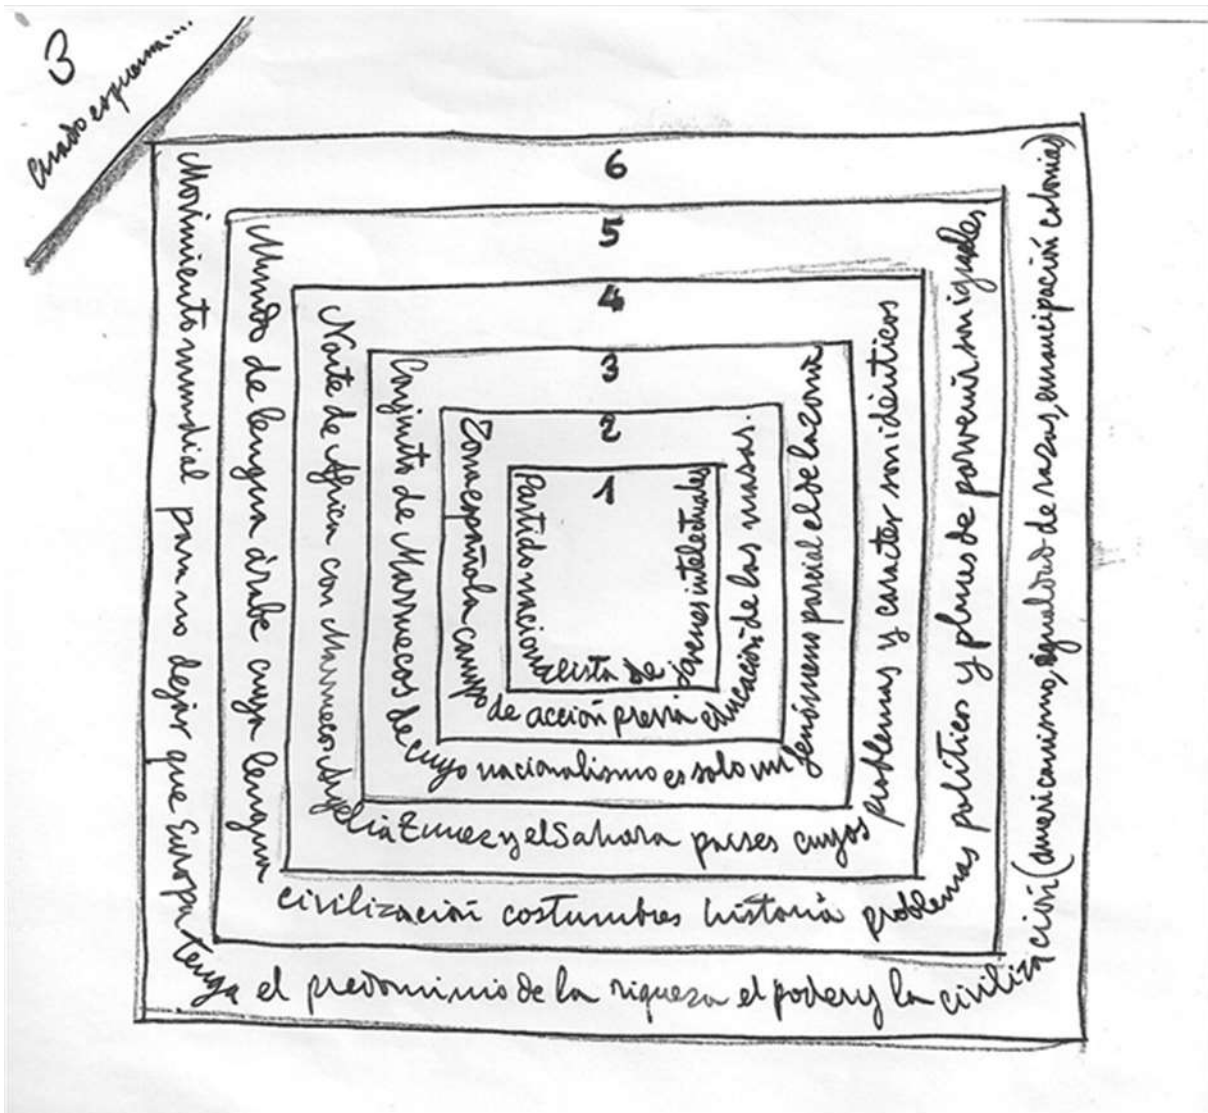 3
Cuadro esquema...
6
Movimiento mundial para no dejar que Europa tenga el predominio de la riqueza el poder y la civilización (americanismo, igualdad de razas, emancipación colonias)
5
Mundo de lengua árabe cuya lengua civilización costumbres historia problemas políticos y planes de porvenir son iguales
4
Norte de Africa con Marruecos Argelia Tunez y el Sahara paises cuyos problemas y caracter son idénticos
3
Conjunto de Marruecos de cuyo nacionalismo es solo un fenómeno parcial el de la zona
2
Zona española campo de acción previa educación de las masas.
1
Partido nacionalista de jóvenes intelectuales